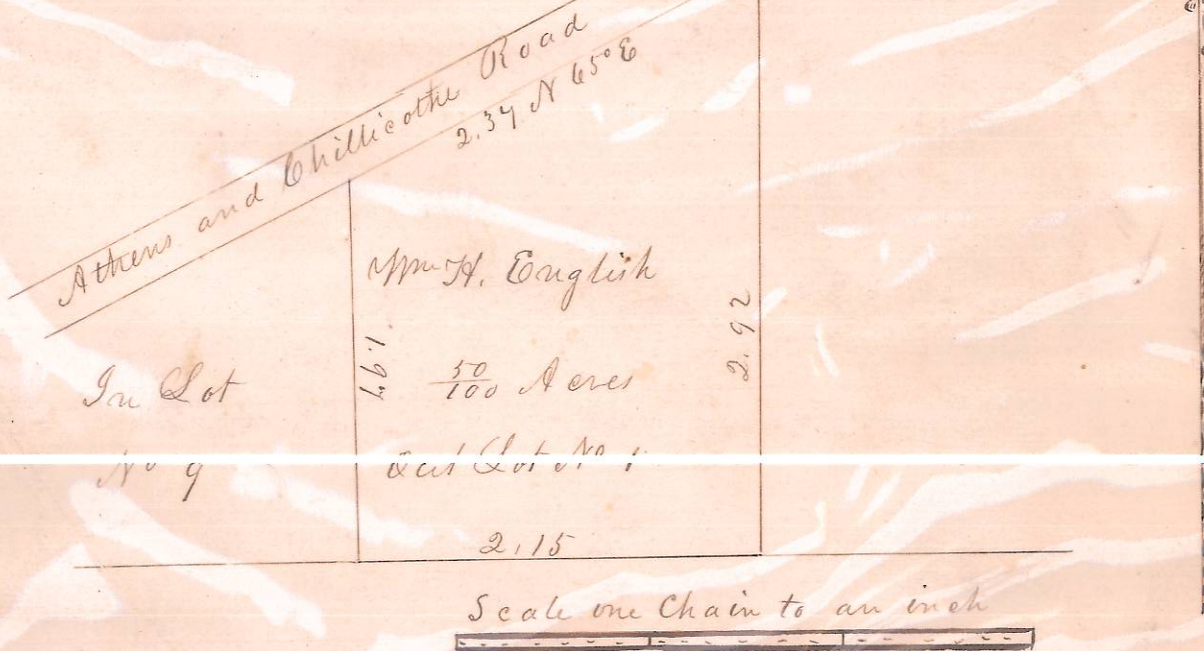 Athens and Chillicothe Road
2.37 N 65° E
Wm H. English
1.97
50/100 Acres
2.92
In Lot
No 9
Out Lot No 1
2.15
Scale one Chain to an inch